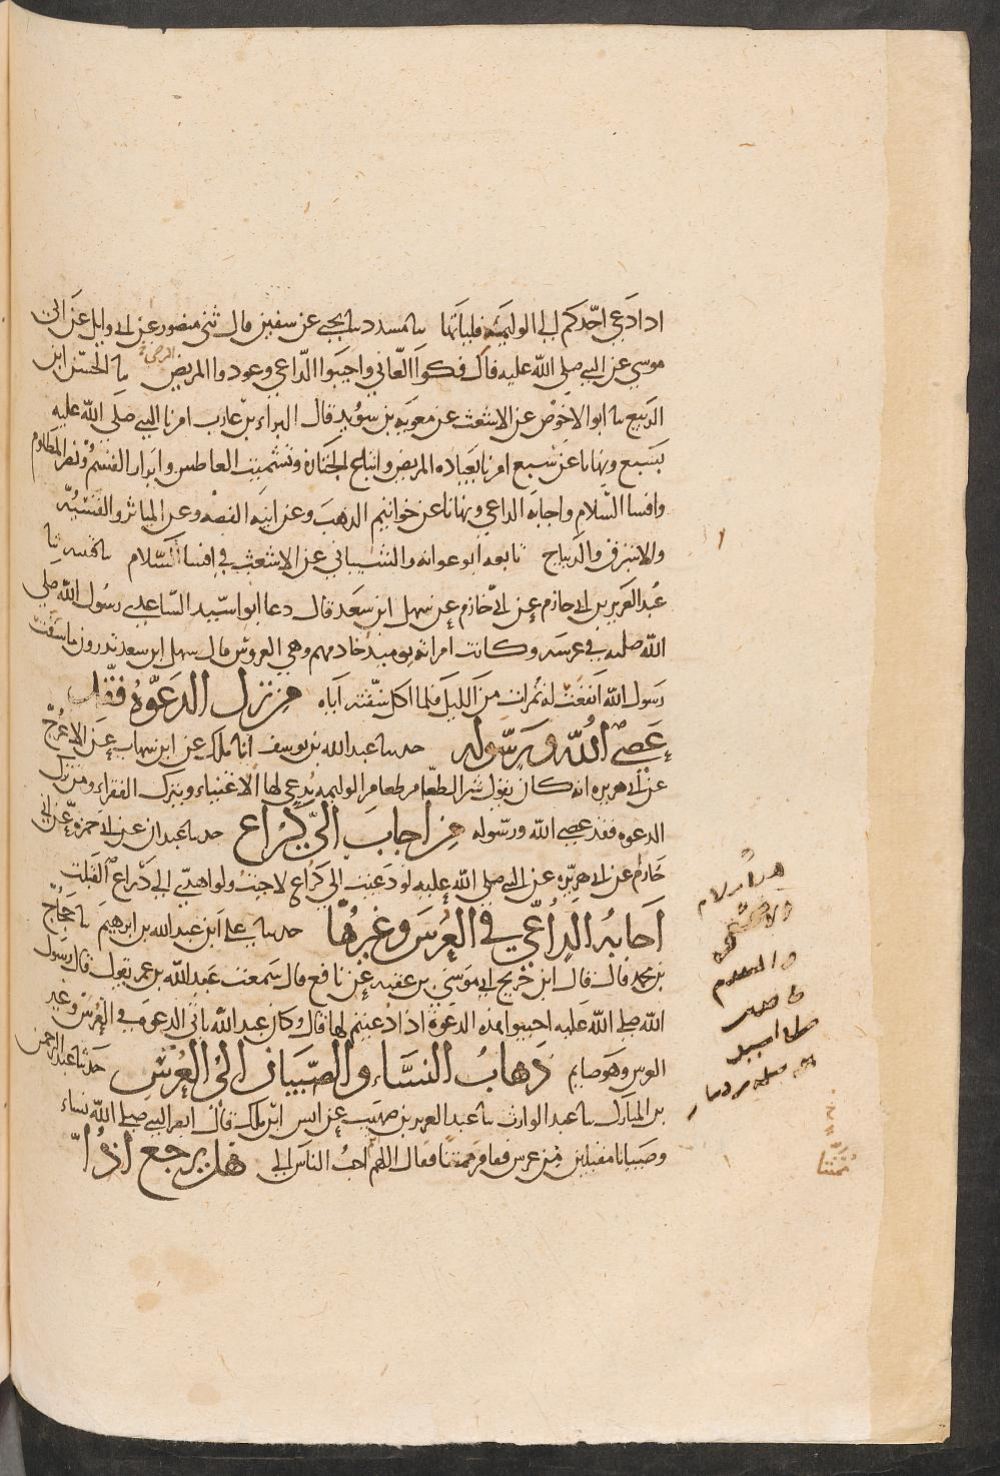 اذا دعي احدكم الي الوليمة فلياتها نا مسدد نا يحيي عن سفين قال ثني منصور عن ابي وايل عن ابي
موسي عن النبي صلي الله عليه قال فكوا العاني واجيبوا الداعي وعودوا المريض نا الحسن ابن
الربيع نا ابو الاحوص عن الاشعث عن معويه بن سويد قال البراء بن عازب امرنا النبي صلي الله عليه
بسبع ونهانا عن سبع امرنا بعياده المريض واتباع الجنازة وتشميت العاطس وابرار القسم ونصر المظلوم
وافشا السلام واجابه الداعي ونهانا عن خواتيم الذهب وعن انيه الفضه وعن المياثر والقسيه
والاستبرق والديباج تابعه ابو عوانه والشيباني عن الاشعث في افشا السلام نا قتيبه نا
عبد العزيز بن ابي حازم عن ابي حازم عن سهل ابن سعد قال دعا ابو اسيد الساعدي رسول الله صلي
الله عليه في عرسه وكانت امراته يوميذ خادمهم وهي العروس قال سهل ابن سعد تدرون ما سقت
رسول الله انقعت له تمرات من الليل فلما اكل سقته اياه من ترك الدعوة فقد
عصي الله ورسوله حدثنا عبد الله بن يوسف انا ملك عن ابن شهاب عن الاعرج
عن ابي هريره انه كان يقول شر الطعام طعام الوليمه يدعي لها الاغنياء ويترك الفقراء ومن ترك
الدعوه فقد عصي الله ورسوله من اجاب الي كراع حدثنا عبدان عن ابي حمزة عن ابي
حازم عن ابي هريره عن النبي صلي الله عليه لو دعيت الي كراع لاجبت ولو اهدي الي ذراع لقبلت
اجابه الداعي في العرس وغيرها حدثنا علي ابن عبد الله بن ابرهيم نا حجاج
بن محمد قال قال ابن جريج موسي بن عقبه عن نافع قال سمعت عبد الله بن عمر يقول قال رسول
الله صلي الله عليه اجيبوا هذه الدعوة اذا دعيتم لها قال وكان عبد الله ياتي الدعوة في العرس وغير
العرس وهو صايم ذهاب النساء والصبيان الي العرس حدثنا عبد الرحمن
بن المبارك نا عبد الوارث نا عبد العزيز بن صهيب عن انس ابن ملك قال ابصر النبي صلي الله نساء
وصبيانا مقبلين من عرس فقام ممتنا فقال اللهم احب الناس الي هل يرجع اذا